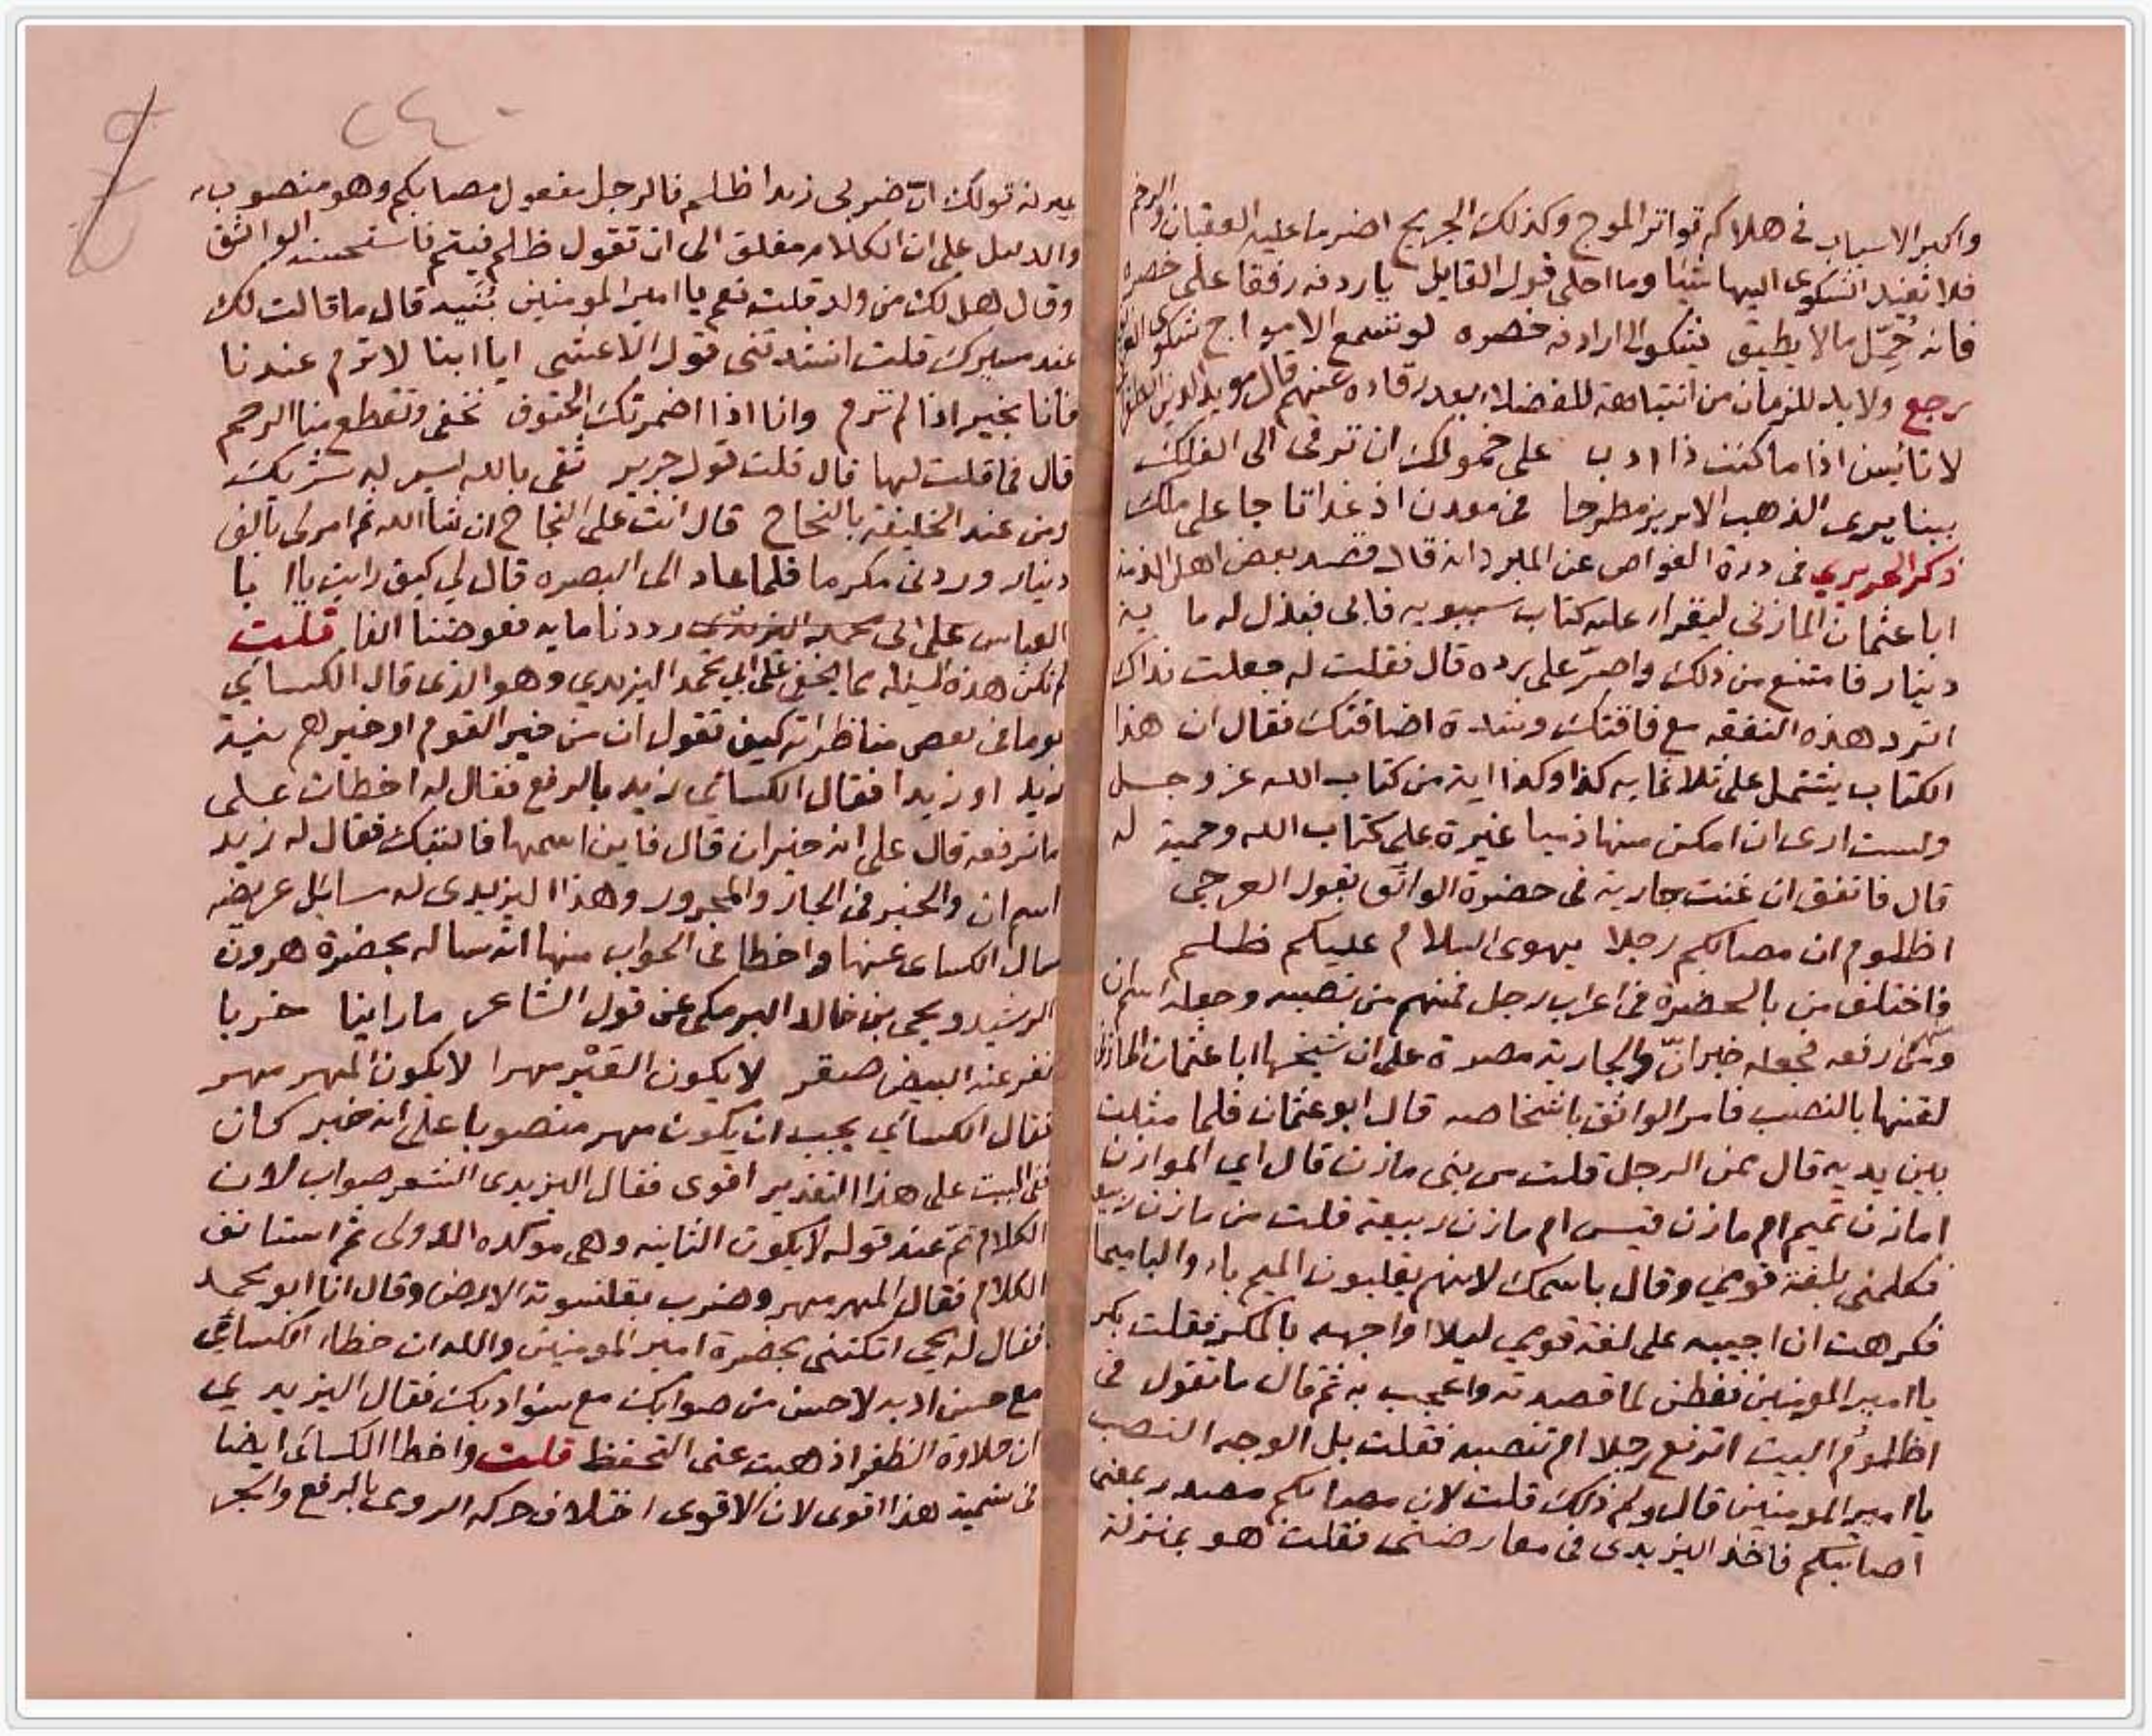 واكبر الاسباب في هلاكه تواتر الموج وكذلك الجريح اضر ما عليه العقبان والرخم
فلا تفيد الشكوى اليها شيا وما احلى قول القايل يا ردفه رفقا على خصره
فانه حُمّل ما لا يطيق يشكو الى اردافه خصره لو تسمع الامواج شكوى
رجع ولا بد للزمان من انتباهة للفضلاء بعد رقاده عنهم قال مويد الدين
لا تائيسن اذا ما كنت ذا ادب على خمولك ان ترقى الى الفلك
بينا يرى الذهب الابريز مطرحا في معدن اذ غدا تاجا على ملك
ذكر الحريري في درة الغواص عن المبرد انه قال قصد بعض اهل الذمة
ابا عثمان المازني ليقرا عليه كتاب سيبويه فابى فبذل له ما ية
دينار فامتنع من ذلك واصرّ على رده قال فقلت له جعلت فداك
اترد هذه النفقه مع فاقتك وشدة اضاقتك فقال ان هذا
الكتاب يشتمل على ثلاثمايه كذا وكذا اية من كتاب الله عز وجل
ولست ارى ان امكن منها ذميا غيرة على كتاب الله وحمية له
قال فاتفق ان غنت جارية في حضرة الواثق بقول العرجي
اظلوم ان مصابكم رجلا يهوى السلام عليكم ظلم
فاختلف من بالحضرة في اعراب رجل فمنهم من نصبه وجعله اسم ان
ومنهم من رفعه فجعله خبر انّ والجارية مصرة على ان شيخها ابا عثمان المازني
لقنها بالنصب فامر الواثق باشخاصه قال ابو عثمان فلما مثلت
بين يديه قال ممن الرجل قلت من بني مازن قال اي الموازن
امازن تميم ام مازن قيس ام مازن ربيعة قلت من مازن ربيعة
فكلمني بلغة قومي وقال باسمك لانهم يقلبون الميم باء والبا ميما
فكرهت ان اجيبه على لغة قومي ليلا اواجهه بالمكر فقلت بكر
يا امير المومنين ففطن لما قصدته واعجب به ثم قال ما تقول في
اظلومُ البيت اترفع رجلا ام تنصبه فقلت بل الوجه النصب
يا امير المومنين قال ولم ذلك قلت لان مصابكم مصدر بمعنى
اصابتكم فاخذ اليزيدي في معارضتي فقلت هو بمنزلة
٢٤٠
قولك ان ضربى زيدا ظلم فالرجل مفعول مصابكم وهو منصوب به
والدليل على ان الكلام معلق الى ان تقول ظلم فيتم فاستحسنه الواثق
وقال هل لك من ولد قلت نعم يا امير المومنين بُنَيه قال ما قالت لك
عند مسيرك قلت انشدتني قول الاعشى ايا ابتا لا ترم عندنا
فانا بخير اذا لم ترم وانا اذا اضمرتك الحتوف نخفى وتقطع منا الرحم
قال فما قلت لها قال قلت قول جرير ثقى بالله ليس له شريك
ومن عند الخليفة بالنجاح قال انت على النجاح ان شا الله ثم امر لى بالف
دينار وردنى مكرما فلما عاد الى البصره قال لي كيف رايت يا ا با
العباس رددنا مايه فعوضنا الفا قلت
لم تكن هذه المسيله مما يخفى على ابي محمد اليزيدي وهو الذى قال الكسائي
يوما في بعض مناظراته كيف تقول ان من خير القوم او خيرهم نية
زيد او زيدا فقال الكسائي زيد بالرفع فقال له اخطات على
ما ترفعه قال على انه خبر ان قال فاين اسمها فالتفك فقال له زيد
اسم ان والخبر في الجار والمجرور وهذا اليزيدى له سائل عريضه
سال الكساى عنها واخطا في الجواب منها انه ساله بحضرة هرون
الرشيد ويحى بن خالد البرمكى عن قول الشاعر ما راينا خربا
نفر عنه البيض صقر لا يكون العَيْر مهرا لا يكون المهر مهر
فقال الكسائي يجب ان يكون مهر منصوبا على انه خبر كان
ففى البيت على هذا التقدير اقوى فقال اليزيدى الشعر صواب لان
الكلام تم عند قوله لا يكون الثانيه وهي موكده الاولى ثم استانف
الكلام فقال المهر مهر وضرب بقلنسوته الارض وقال انا ابو محمد
فقال له يحى اتكتنى بحضرة امير المومنين والله ان خطاء الكسائي
مع حسن ادبه لاحسن من صوابك مع سو ادبك فقال اليزيدي
ان حلاوة الظفر اذهبت عنى التحفظ قلت واخطا الكسائى ايضا
في تسمية هذا اقوى لان الاقوى اختلاف حركه الروى بالرفع والجر